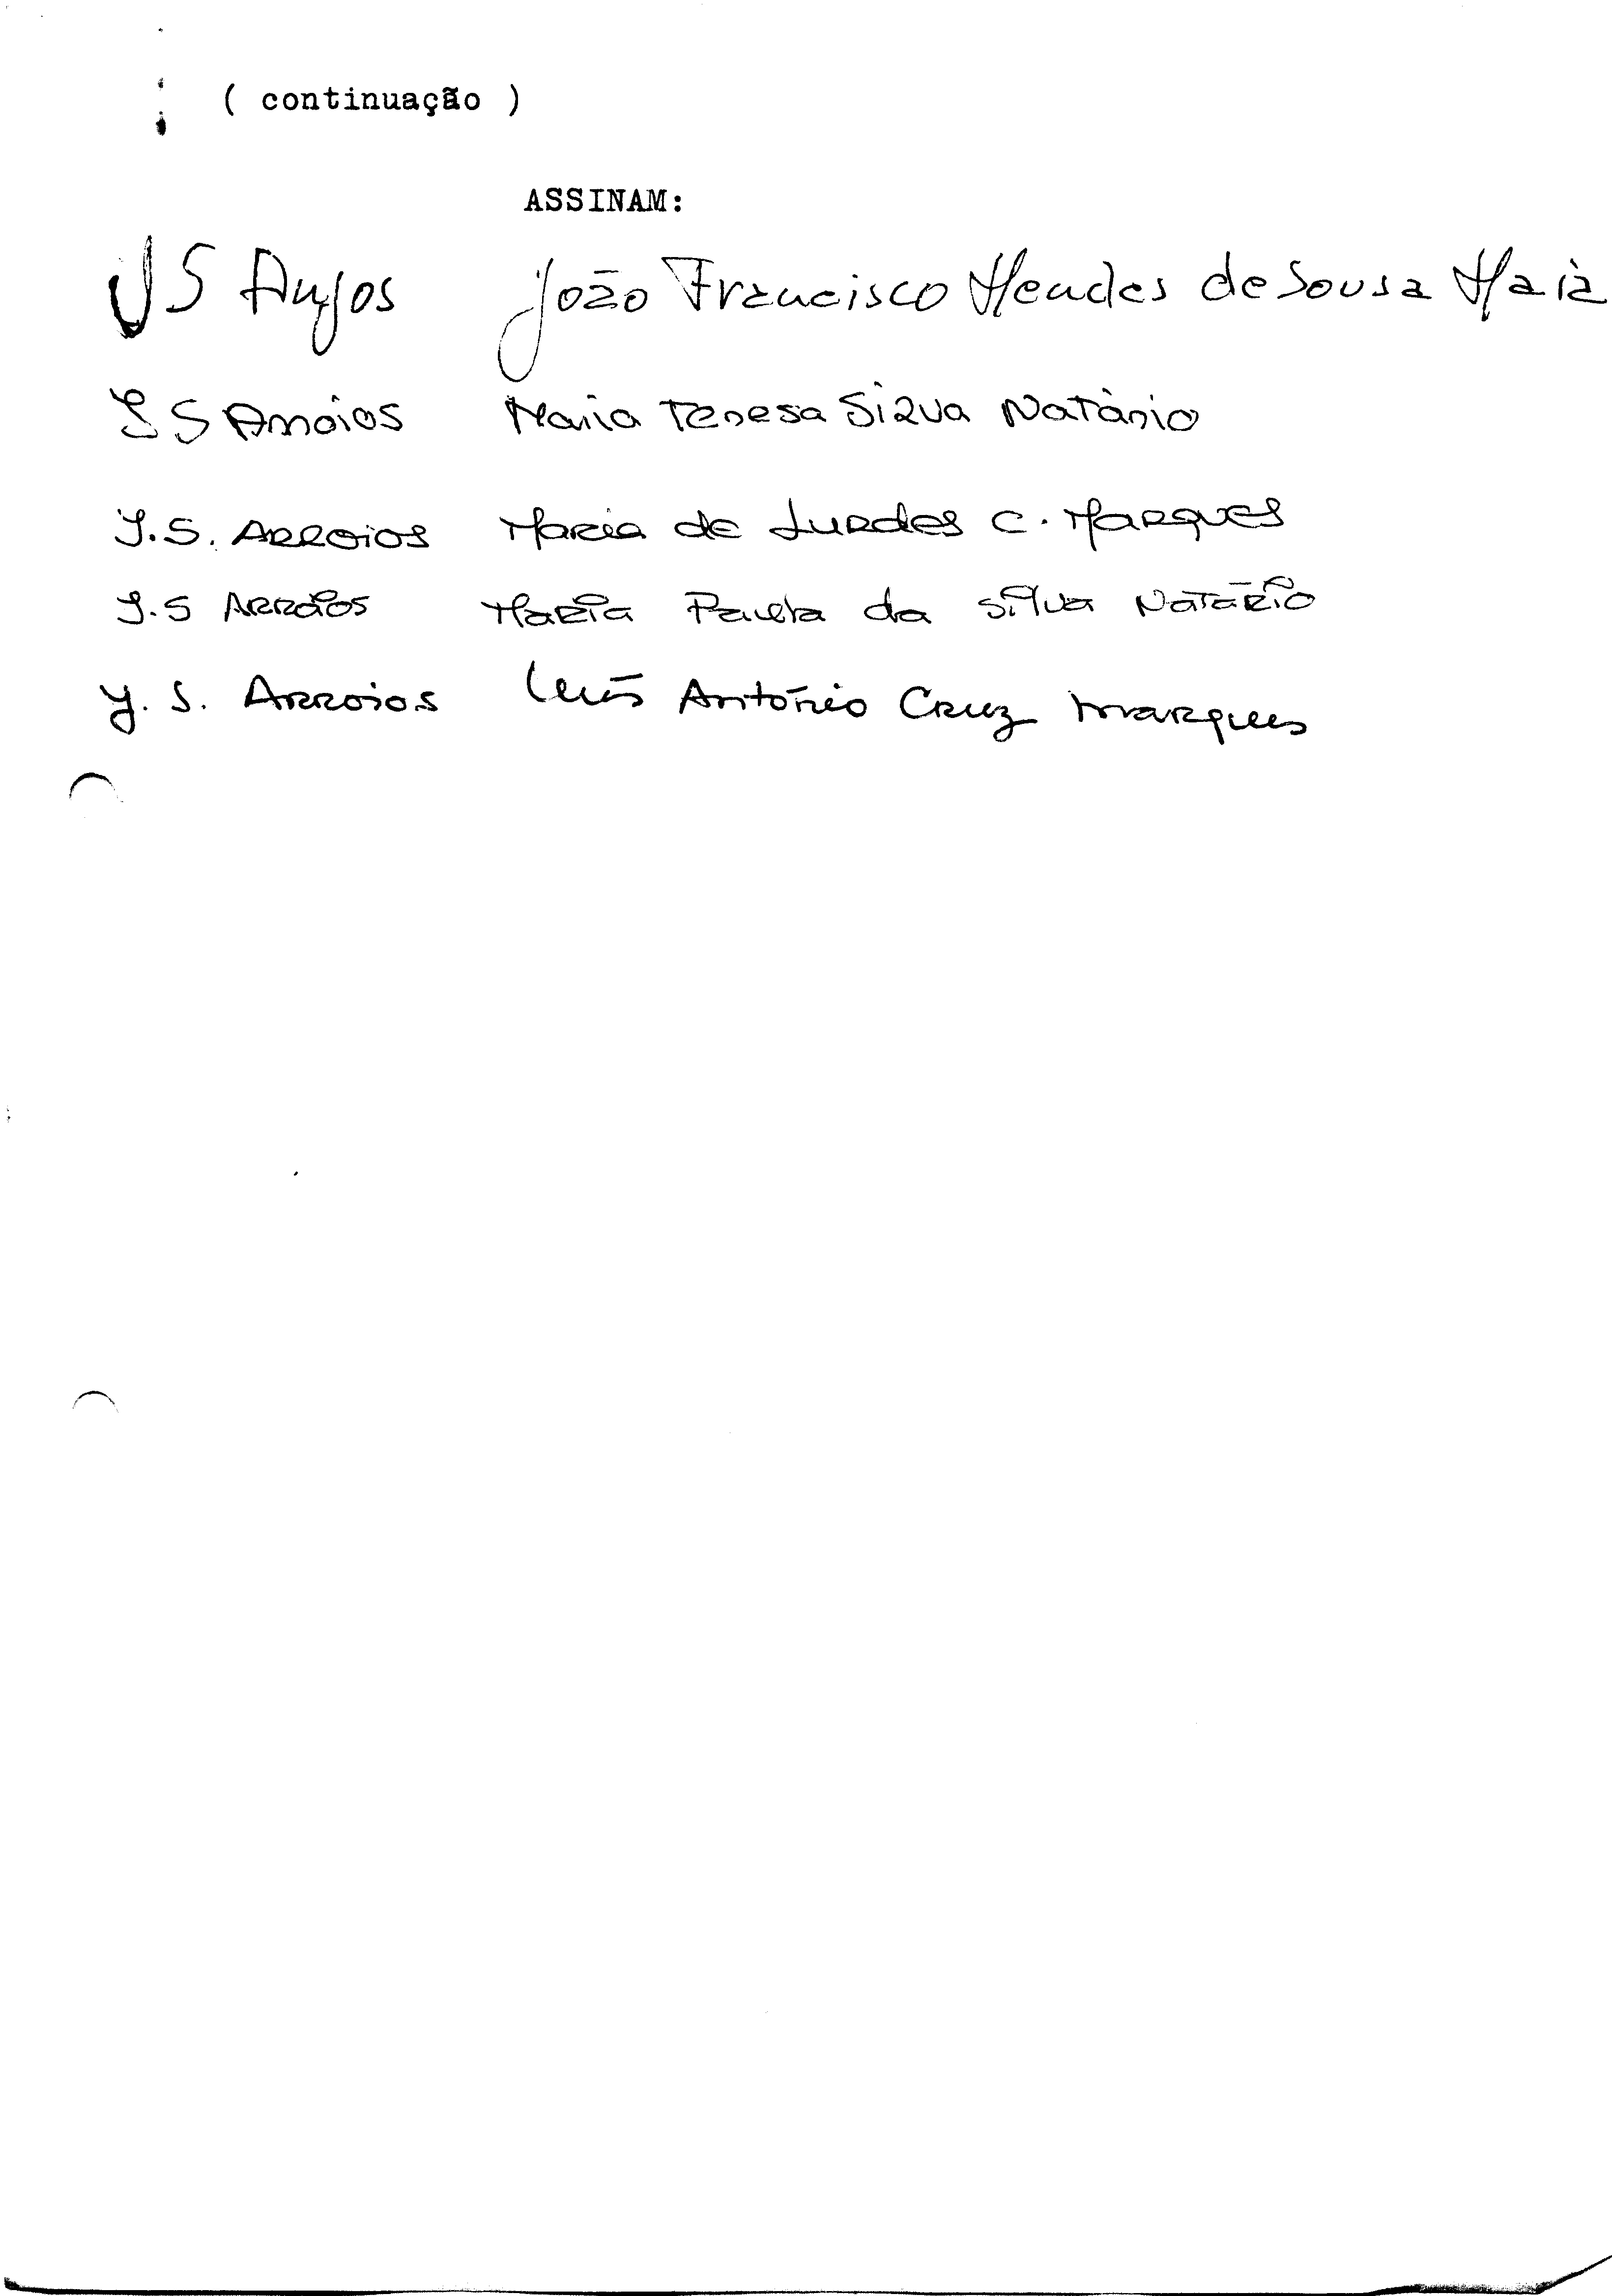 ( continuação )
ASSINAM:
JS Anjos João Francisco Mendes de Sousa Maia
JS Arroios Maria Teresa Silva Natário
J.S. ARROIOS Maria de Lurdes C. Marques
J.S ARROIOS Maria Paula da Silva Natário
J. S. Arroios Luís António Cruz Marques